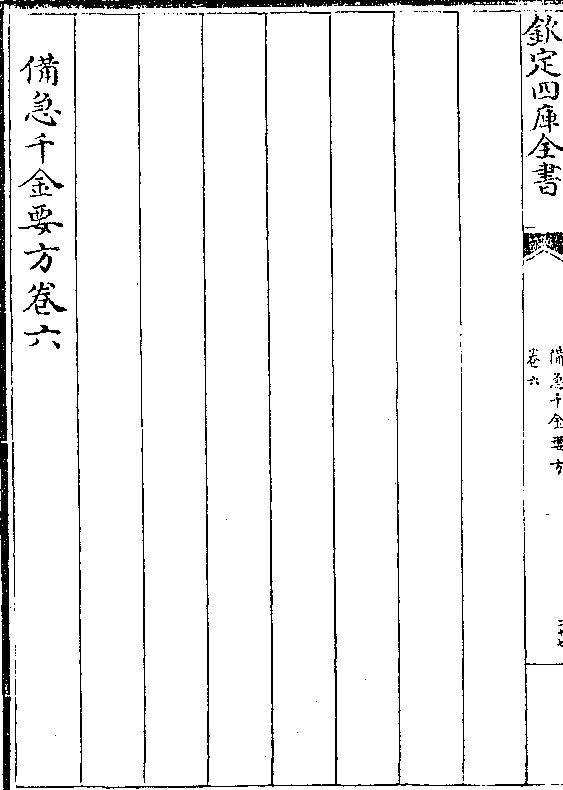 欽定四庫全書
備急千金要方
卷六
備急千金要方卷六